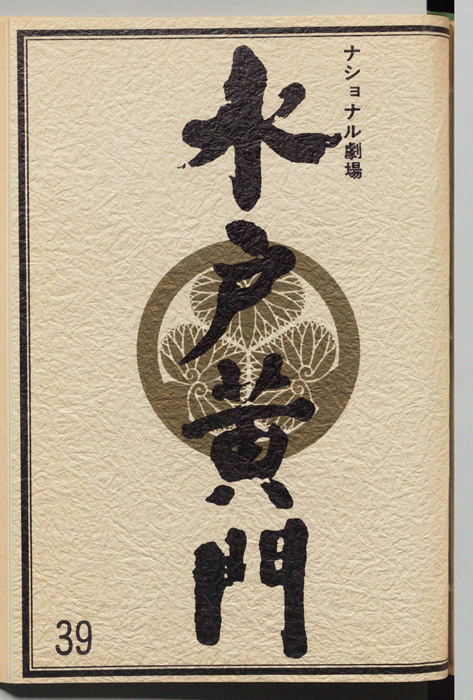 ナショナル劇場
水戸黄門
39